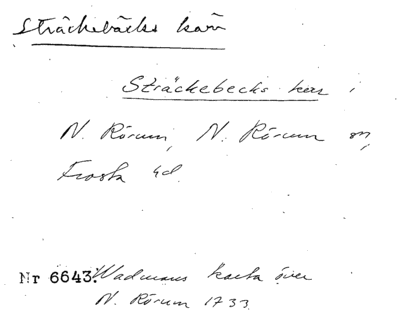 Sträckebäcks kärr
Sträckebecks kær i
N. Rörum, N. Rörum sn,
Frosta hd.
Nr 6643. Wadmans karta över
N. Rörum 1733.